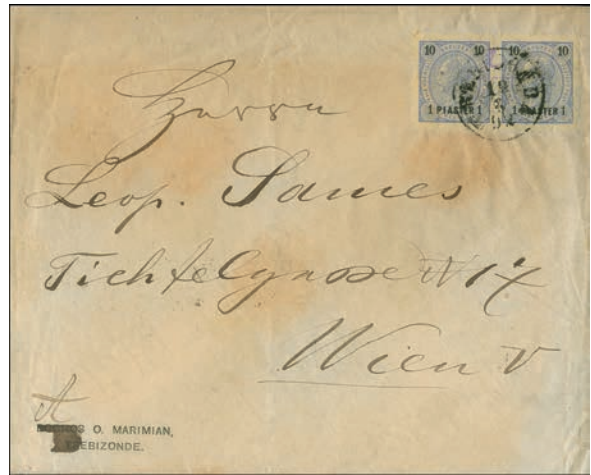 10 10 10 10
1 PIASTER 1 1 PIASTER 1
Herrn
Leop. Sames
N 17
Wien V
O. MARIMIAN,
TREBIZONDE.